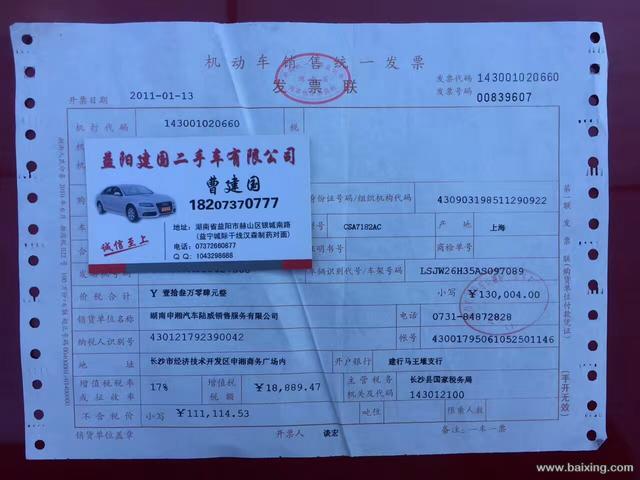 机动车销售统一发票
发票联
发票代码 143001020660
发票号码 00839607
开票日期 2011-01-13
机打代码 143001020660 税
益阳建国二手车有限公司
曹建国
18207370777
地址：湖南省益阳市赫山区银城南路
（益宁城际干线汉森制药对面）
电话：07372660877
Q Q：1043298688
诚信至上
身份证号码/组织机构代码 430903198511290922
CSA7182AC 产地 上海
证明书号 商检单号
车辆识别代号/车架号码 LSJW26H35AS097089
价税合计 ￥ 壹拾叁万零肆元整 小写 ￥130,004.00
销货单位名称 湖南申湘汽车陆威销售服务有限公司 电话 0731-84872828
纳税人识别号 430121792390042 账号 43001795061052501146
地址 长沙市经济技术开发区申湘商务广场内 开户银行 建行马王堆支行
增值税税率或征收率 17% ￥18,889.47 主管税务机关及代码 长沙县国家税务局 143012100
不含税价 小写 ￥111,114.53 吨位 限乘人数
销货单位盖章 开票人 谈宏 备注：一车一票
第一联 发票联（购货单位付款凭证）
（手开无效）
www.baixing.com